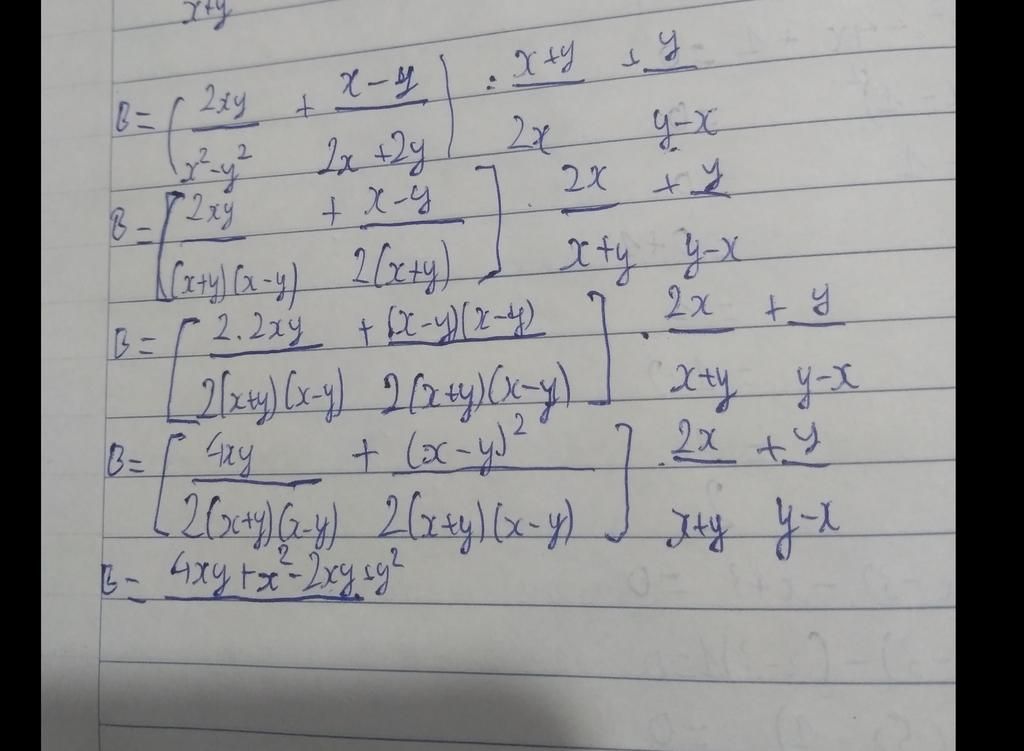 x+y
B = ( 2xy/(x²-y²) + (x-y)/(2x+2y) ) : (x+y)/2x + y/(y-x)
B = [ 2xy/((x+y)(x-y)) + (x-y)/(2(x+y)) ] . 2x/(x+y) + y/(y-x)
B = [ 2.2xy/(2(x+y)(x-y)) + (x-y)(x-y)/(2(x+y)(x-y)) ] . 2x/(x+y) + y/(y-x)
B = [ 4xy/(2(x+y)(x-y)) + (x-y)²/(2(x+y)(x-y)) ] . 2x/(x+y) + y/(y-x)
B = 4xy+x²-2xy+y²